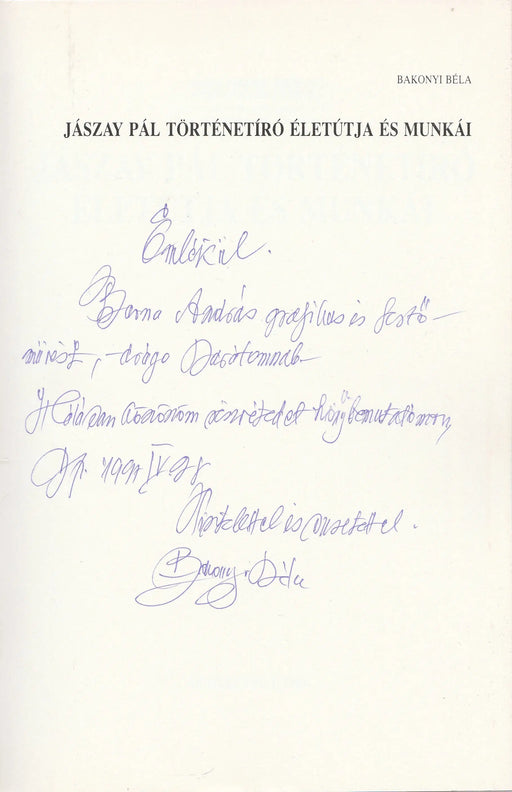 BAKONYI BÉLA
JÁSZAY PÁL TÖRTÉNETÍRÓ ÉLETÚTJA ÉS MUNKÁI
Emlékül.
Barna András grafikus és festő-
művész, - drága Barátomnak
Hálásan köszönöm részvételedet könyvbemutatómon,
Bp. 199 IV
Tisztelettel és szeretettel.
Bakonyi Béla